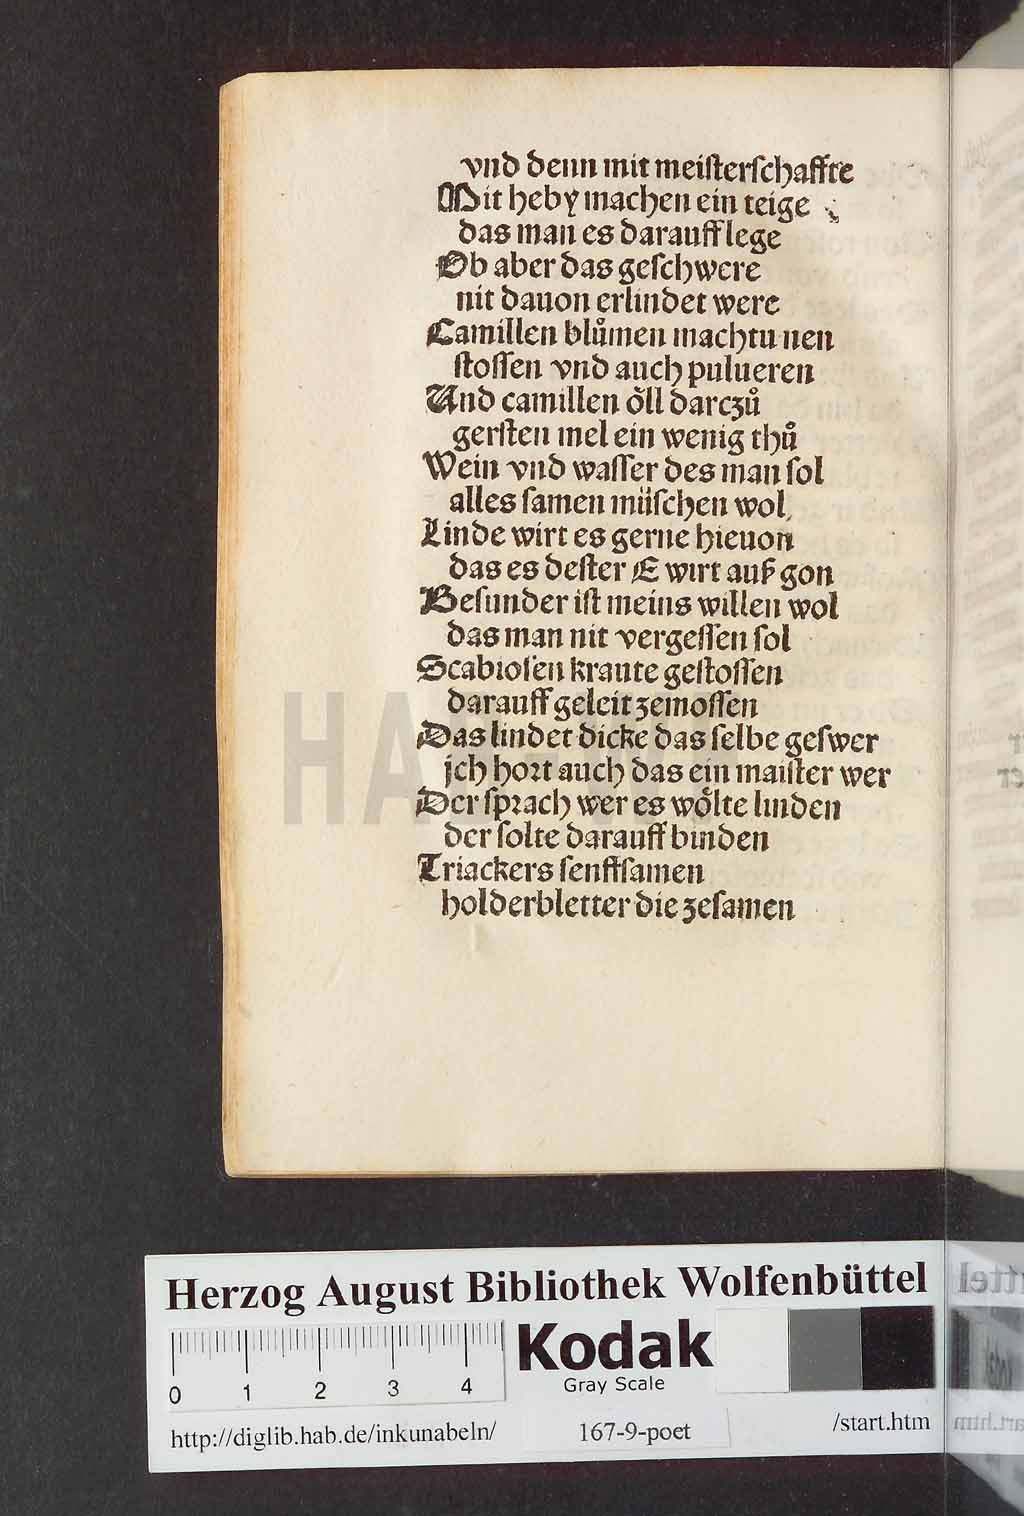 vnd denn mit meiſterſchaffte
Mit heby machen ein teige
das man es darauff lege
Ob aber das geſchwere
nit dauon erlindet were
Camillen blůmen machtu nen
ſtoſſen vnd auch pulueren
Und camillen oͤll darczů
gerſten mel ein wenig thů
Wein vnd waſſer des man ſol
alles ſamen müſchen wol
Linde wirt es gerne hieuon
das es deſter E wirt auß gon
Beſunder iſt meins willen wol
das man nit vergeſſen ſol
Scabioſen kraute geſtoſſen
darauff geleit zemoſſen
Das lindet dicke das ſelbe geſwer
jch hoꝛt auch das ein maiſter wer
Der ſpꝛach wer es woͤlte linden
der ſolte darauff binden
Triackers ſenffſamen
holderbletter die zeſamen
HAB
Herzog August Bibliothek Wolfenbüttel
0 1 2 3 4
Kodak
Gray Scale
http://diglib.hab.de/inkunabeln/ 167-9-poet /start.htm